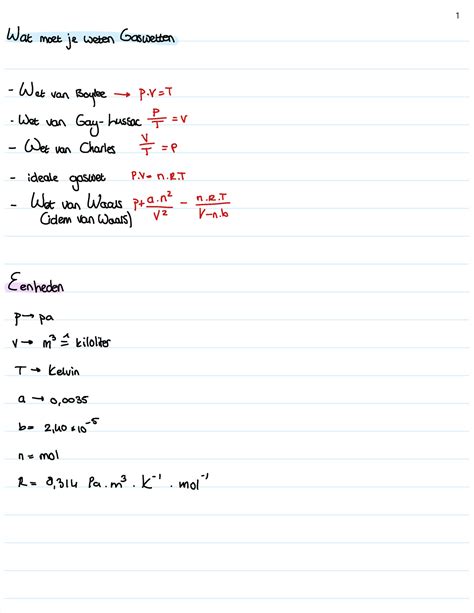 1
Wat moet je weten Gaswetten
- Wet van Boyle → p.V=T
- Wet van Gay-Lussac P/T = V
- Wet van Charles V/T = P
- ideale gaswet P.V= n.R.T
- Wet van Waals p+ a.n²/V² - n.R.T/V-n.b
(idem van Waals)
Eenheden
p→ pa
V→ m³ ≙ kiloliter
T → Kelvin
a → 0,0035
b= 2,40*10⁻⁵
n = mol
R = 8,314 Pa.m³ . K⁻¹ . mol⁻¹